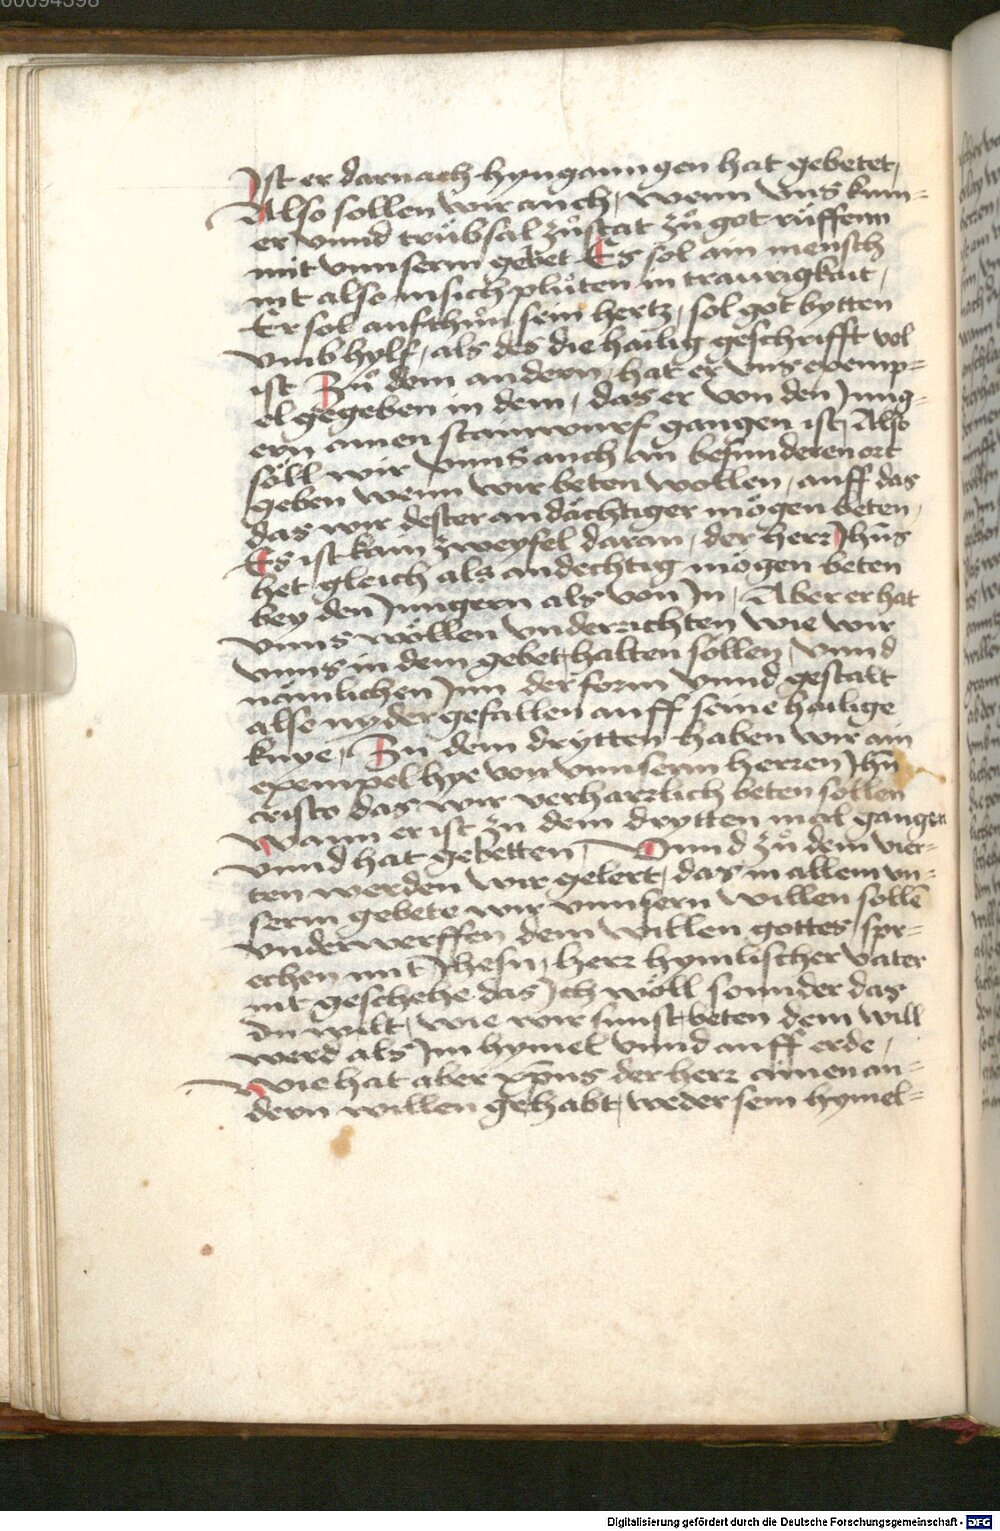 00094398
Ist er darnach hyngaunngen hat gebetet,
Also sollen wir auch, wenn vns kum=
er vnnd trübsal zůstat zů got růffenn
mit vnnserm gebet Es sol ain mensch
nit also in sich plůten in traurigkait,
Er sol aufthůn sein hertz, sol got bytten
vmb hylf, als des die hailig geschrifft vol
ist Zů dem andern, hat er vns exemp=
el gegeben in dem, das er von den Jung=
ern ainen stainwurf gangen ist, Also
söll wir vnns auch an besunderen ort
geben wenn wir beten wollen, auff das
das wir dester andächtiger mögen beten,
Es ist kain zweyfel daran, der herr Jhus
het gleich als andechtig mögen beten
bey den Jungern als von In, Aber er hat
vnns wöllen vnderrichten wie wir
vnns in dem gebet halten söllen, vnnd
nämlichen Inn der form vnnd gestalt
also nyder gefallen auff seine hailige
knye, Zu dem drytten haben wir ain
exempel hye von vnnserm herren Jhu
cristo das wir verharrlich beten sollen
Wann er ist zu dem drytten mal gangen
vnnd hat gebetten, Vnnd zů dem vier=
ten werden wir gelert, das in allem vn=
serm gebete wir vnnsern willen sollē
vnderwerffen dem willen gottes, spr=
echen mit Jhesu, herr hymlischer vater
nit geschehe das Ich wöll sonnder das
du wilt, wie wir sunst beten dein will
werd als Im hymel vnnd auff erde,
Wie hat aber xp̄us der herr ainen an=
dern willen gehabt, weder sein hymel=
Digitalisierung gefördert durch die Deutsche Forschungsgemeinschaft - DFG